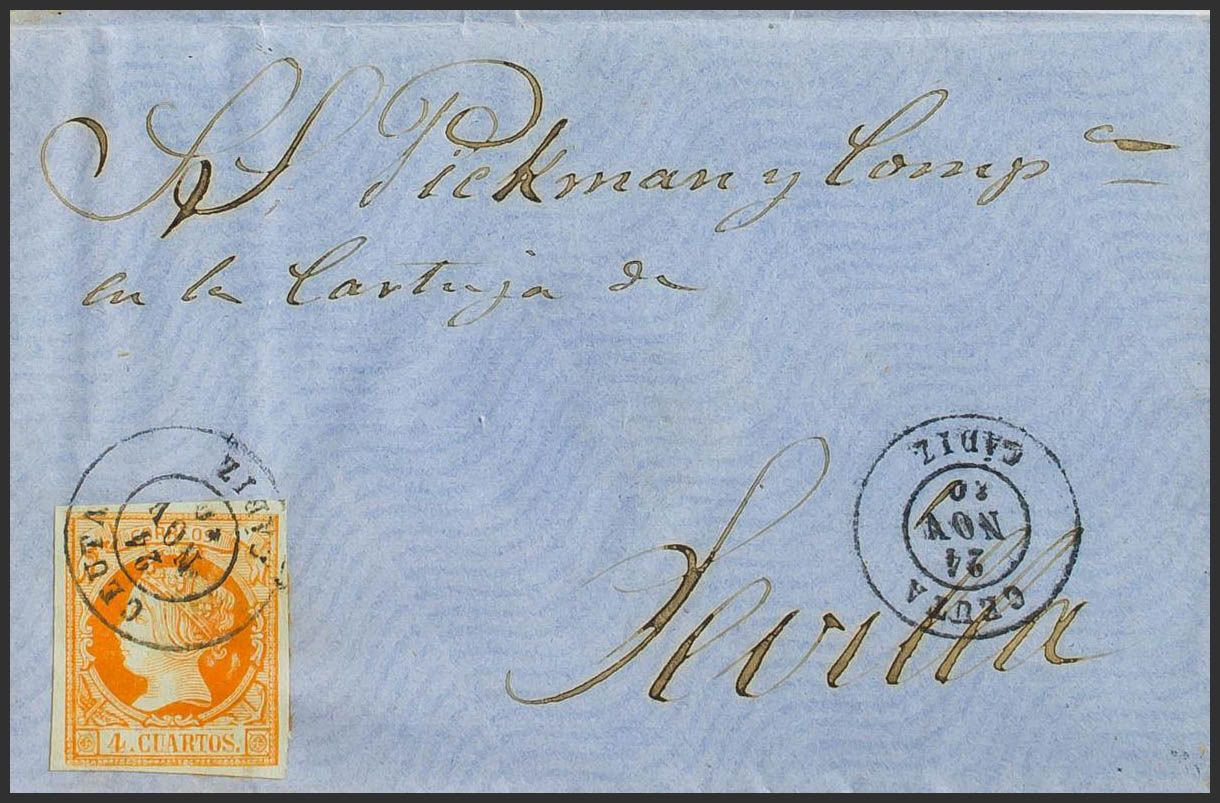 S. S. Pickman y Comp.ª
en la Cartuja de
Sevilla
CEUTA
24
NOV
CADIZ
CEUTA
24
NOV
60
CÁDIZ
CORREOS
4 CUARTOS.